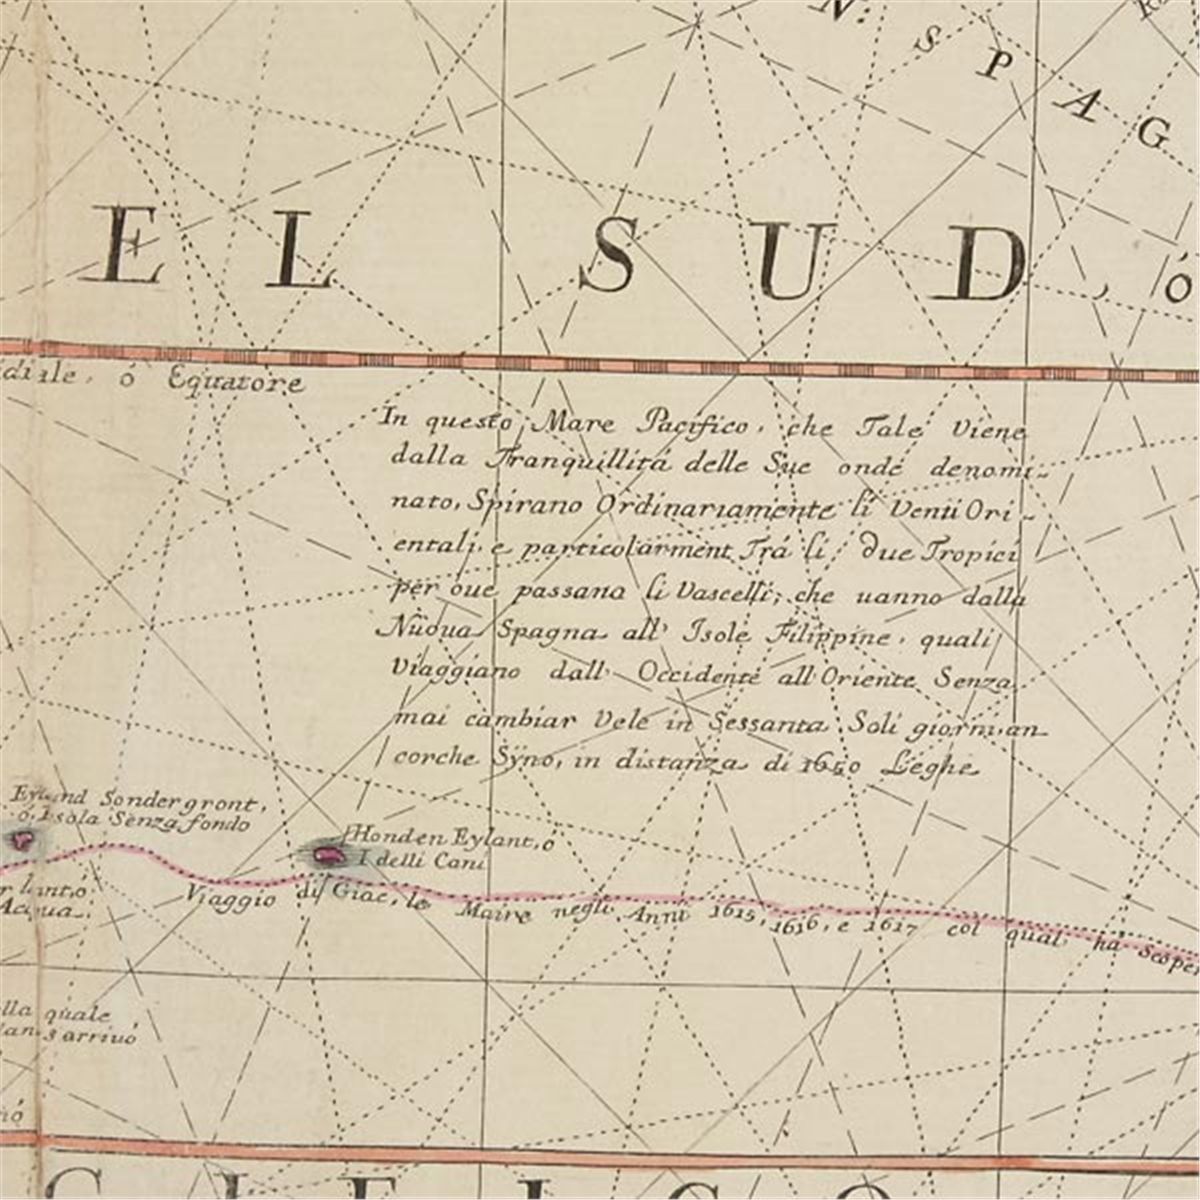 N. SPAG
EL SUD, ó
diale, ó Equatore
In questo Mare Pacifico, che Tale Viene
dalla Tranquillitá delle Sue onde denomi-
nato, Spirano Ordinariamente li Venti Ori-
entali, e particolarment Trá li due Tropici
per oue passano li Vascelli, che uanno dalla
Nuoua Spagna all' Isole Filippine, quali
Viaggiano dall Occidente all'Oriente Senza
mai cambiar Vele in Sessanta Soli giorni, an-
corche Sÿno, in distanza di 1650 Leghe
Eyland Sondergront,
ó Isola Senza fondo
Honden Eylant, ó
I delli Cani
r lant, ó
Acqua.
Viaggio di Giac, le Maire negli Anni 1615, 1616, e 1617 col qual há Scope
lla quale
lan s arriuó
ió
CIFICO